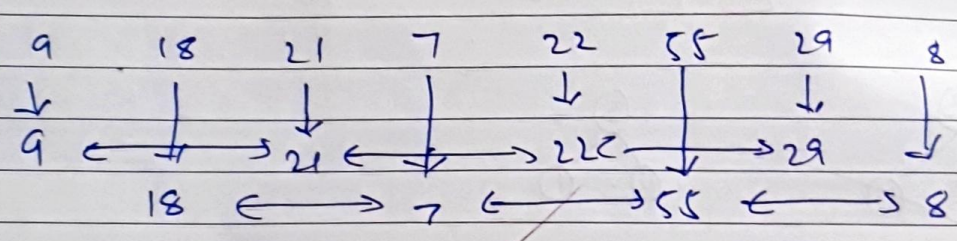 9 18 21 7 22 55 29 8
9 21 22 29
18 7 55 8